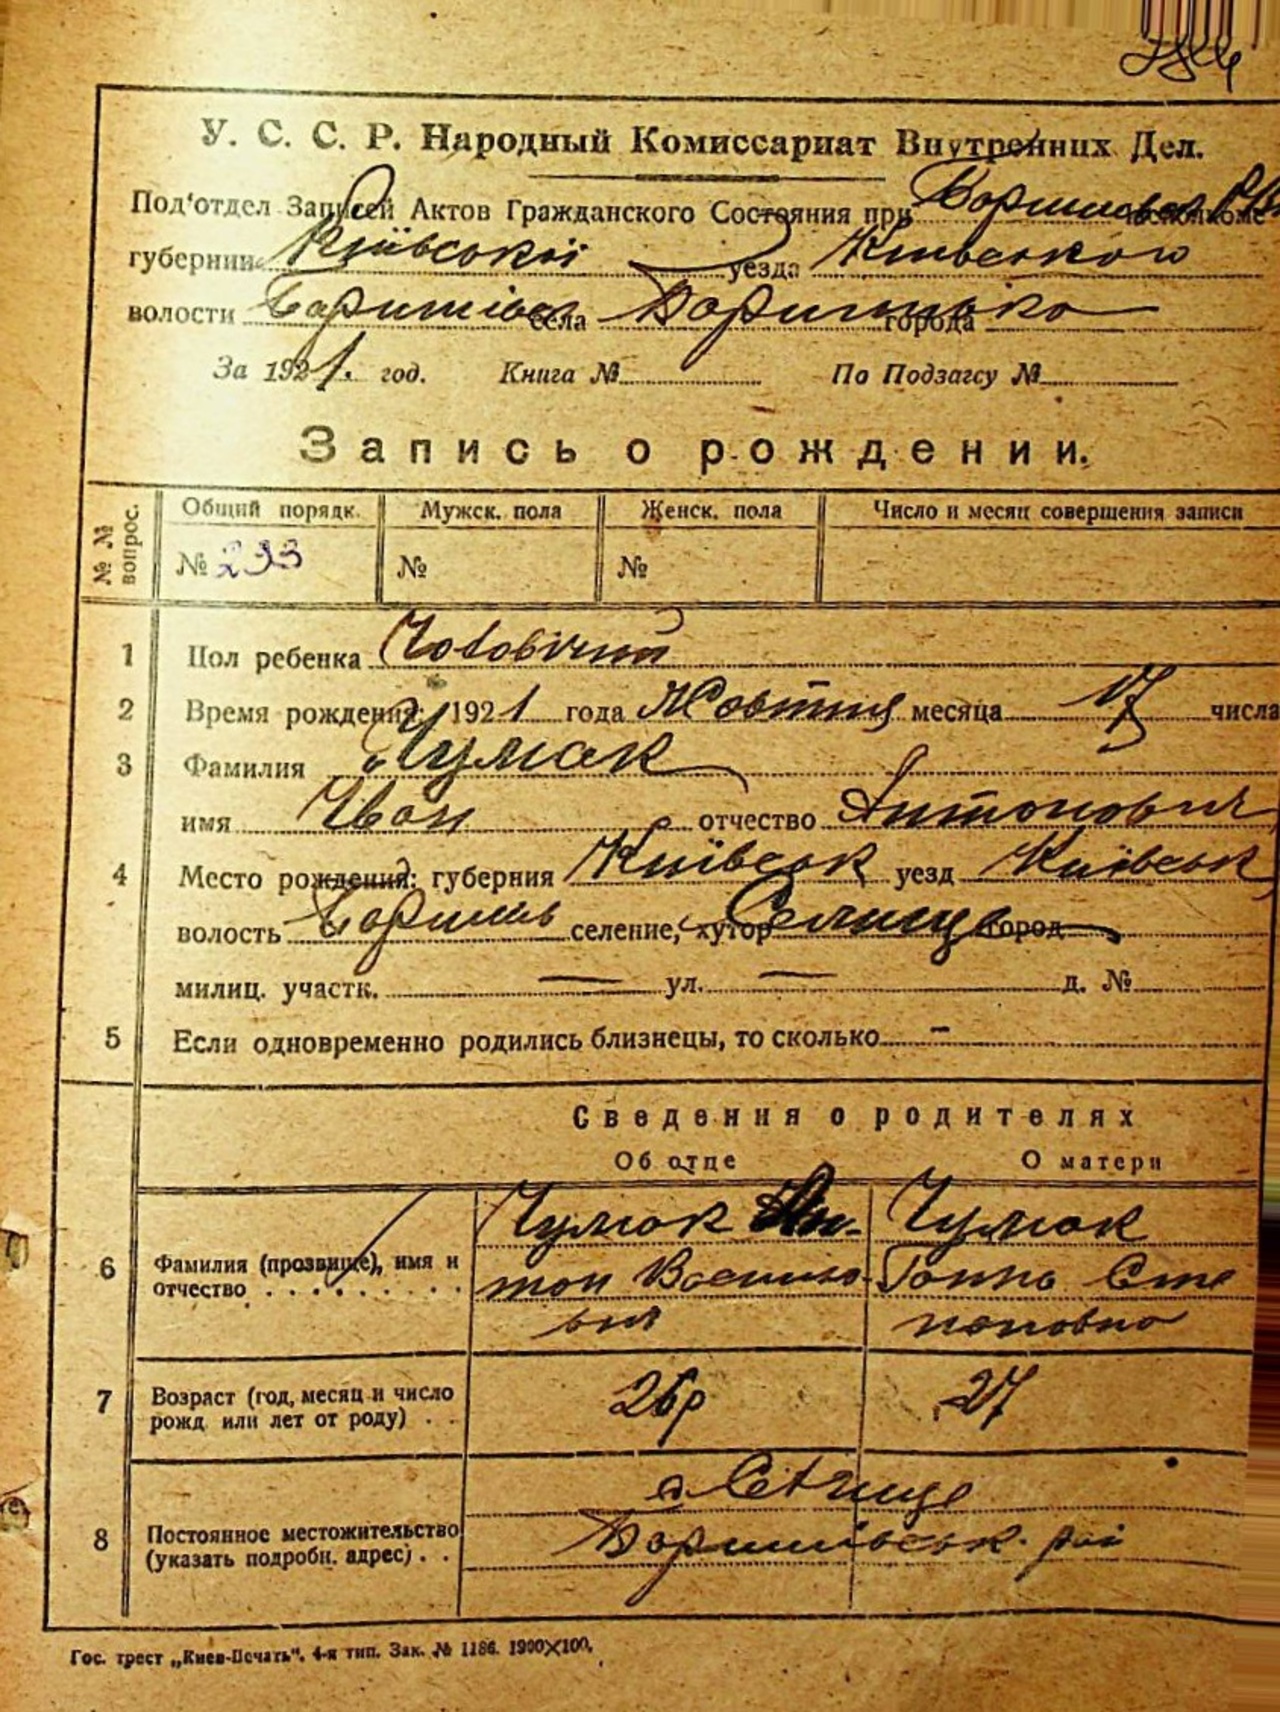 284
У. С. С. Р. Народный Комиссариат Внутренних Дел.
Под'отдел Записей Актов Гражданского Состояния при исполкоме
губернии Київської уезда Київського
волости села города
За 1921. год. Книга № По Подзагсу №
Запись о рождении.
№ № вопрос. Общий порядк. Мужск. пола Женск. пола Число и месяц совершения записи
№ 233 № №
1 Пол ребенка Чоловічий
2 Время рождения: 1921 года Жовтня месяца 17 числа
3 Фамилия Чумак
имя Іван отчество Антонович
4 Место рождения: губерния Київськ уезд Київськ
волость селение, хутор Селище город
милиц. участк. — ул. — д. №
5 Если одновременно родились близнецы, то сколько -
Сведения о родителях
Об отце О матери
6 Фамилия (прозвище), имя и отчество Чумак Ан-тон Василь-
Чумак Ганна Сте
пановна
7 Возраст (год, месяц и число рожд. или лет от роду) 26 р 27
8 Постоянное местожительство (указать подробн. адрес) с Селище
Баришівськ.
Гос. трест „Киев-Печать“. 4-я тип. Зак. № 1186. 1900×100.